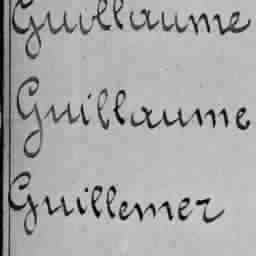 Guillaume
Guillaume
Guillemer